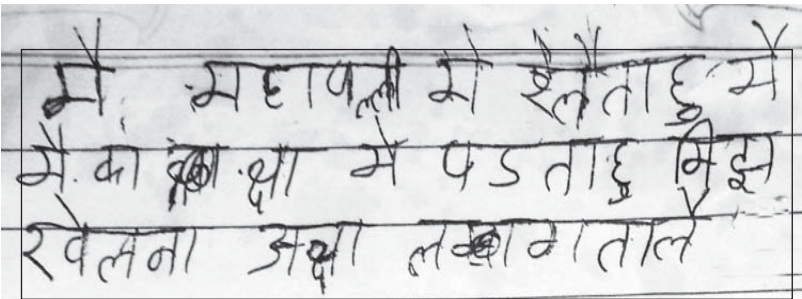 मै महापल्ली मे रैलैताहु मे
मै का क्षा मे पडताहु मिझ
खेलना अक्षा लगाताले